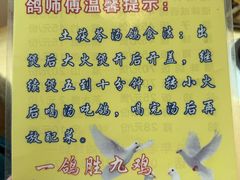 鸽师傅温馨提示：
土茯苓汤鸽食法：出
煲后大火煲开后开盖，继
续煲五到十分钟，转小火
后喝汤吃鸽，喝完汤后再
放配菜。
一鸽胜九鸡